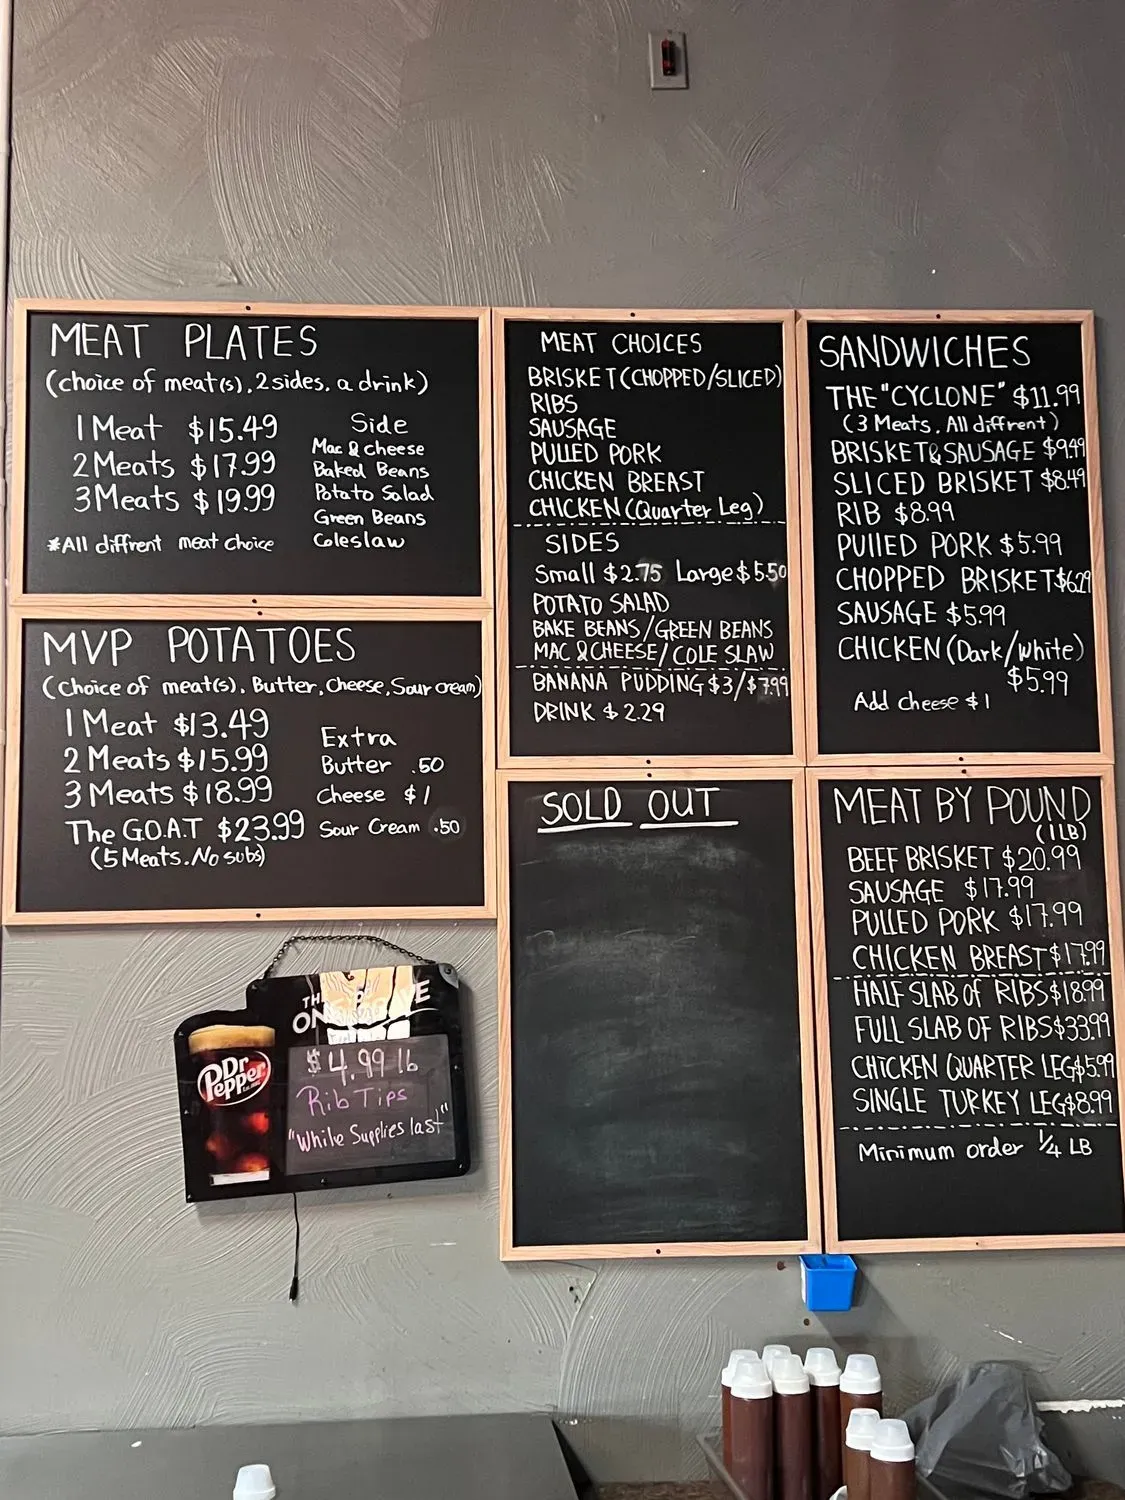 MEAT PLATES
(choice of meat(s), 2 sides, a drink)
1 Meat $15.49
2 Meats $17.99
3 Meats $19.99
*All diffrent meat choice
Side
Mac & cheese
Baked Beans
Potato Salad
Green Beans
Coleslaw
MVP POTATOES
(Choice of meat(s), Butter, Cheese, Sour cream)
1 Meat $13.49
2 Meats $15.99
3 Meats $18.99
The G.O.A.T $23.99
(5 Meats. No subs)
Extra
Butter .50
Cheese $1
Sour Cream .50
MEAT CHOICES
BRISKET (CHOPPED/SLICED)
RIBS
SAUSAGE
PULLED PORK
CHICKEN BREAST
CHICKEN (Quarter Leg)
SIDES
Small $2.75 Large $5.50
POTATO SALAD
BAKE BEANS/GREEN BEANS
MAC & CHEESE/COLE SLAW
BANANA PUDDING $3/$7.99
DRINK $2.29
SANDWICHES
THE "CYCLONE" $11.99
(3 Meats, All diffrent)
BRISKET & SAUSAGE $9.49
SLICED BRISKET $8.49
RIB $8.99
PUllED PORK $5.99
CHOPPED BRISKET $6.29
SAUSAGE $5.99
CHICKEN (Dark/White)
$5.99
Add cheese $1
SOLD OUT
MEAT BY POUND
(1LB)
BEEF BRISKET $20.99
SAUSAGE $17.99
PULLED PORK $17.99
CHICKEN BREAST $17.99
HALF SLAB OF RIBS $18.99
FULL SLAB OF RIBS $33.99
CHICKEN QUARTER LEG $5.99
SINGLE TURKEY LEG $8.99
Minimum order 1/4 LB
Dr Pepper
$4.99 lb
Rib Tips
"While Supplies last"